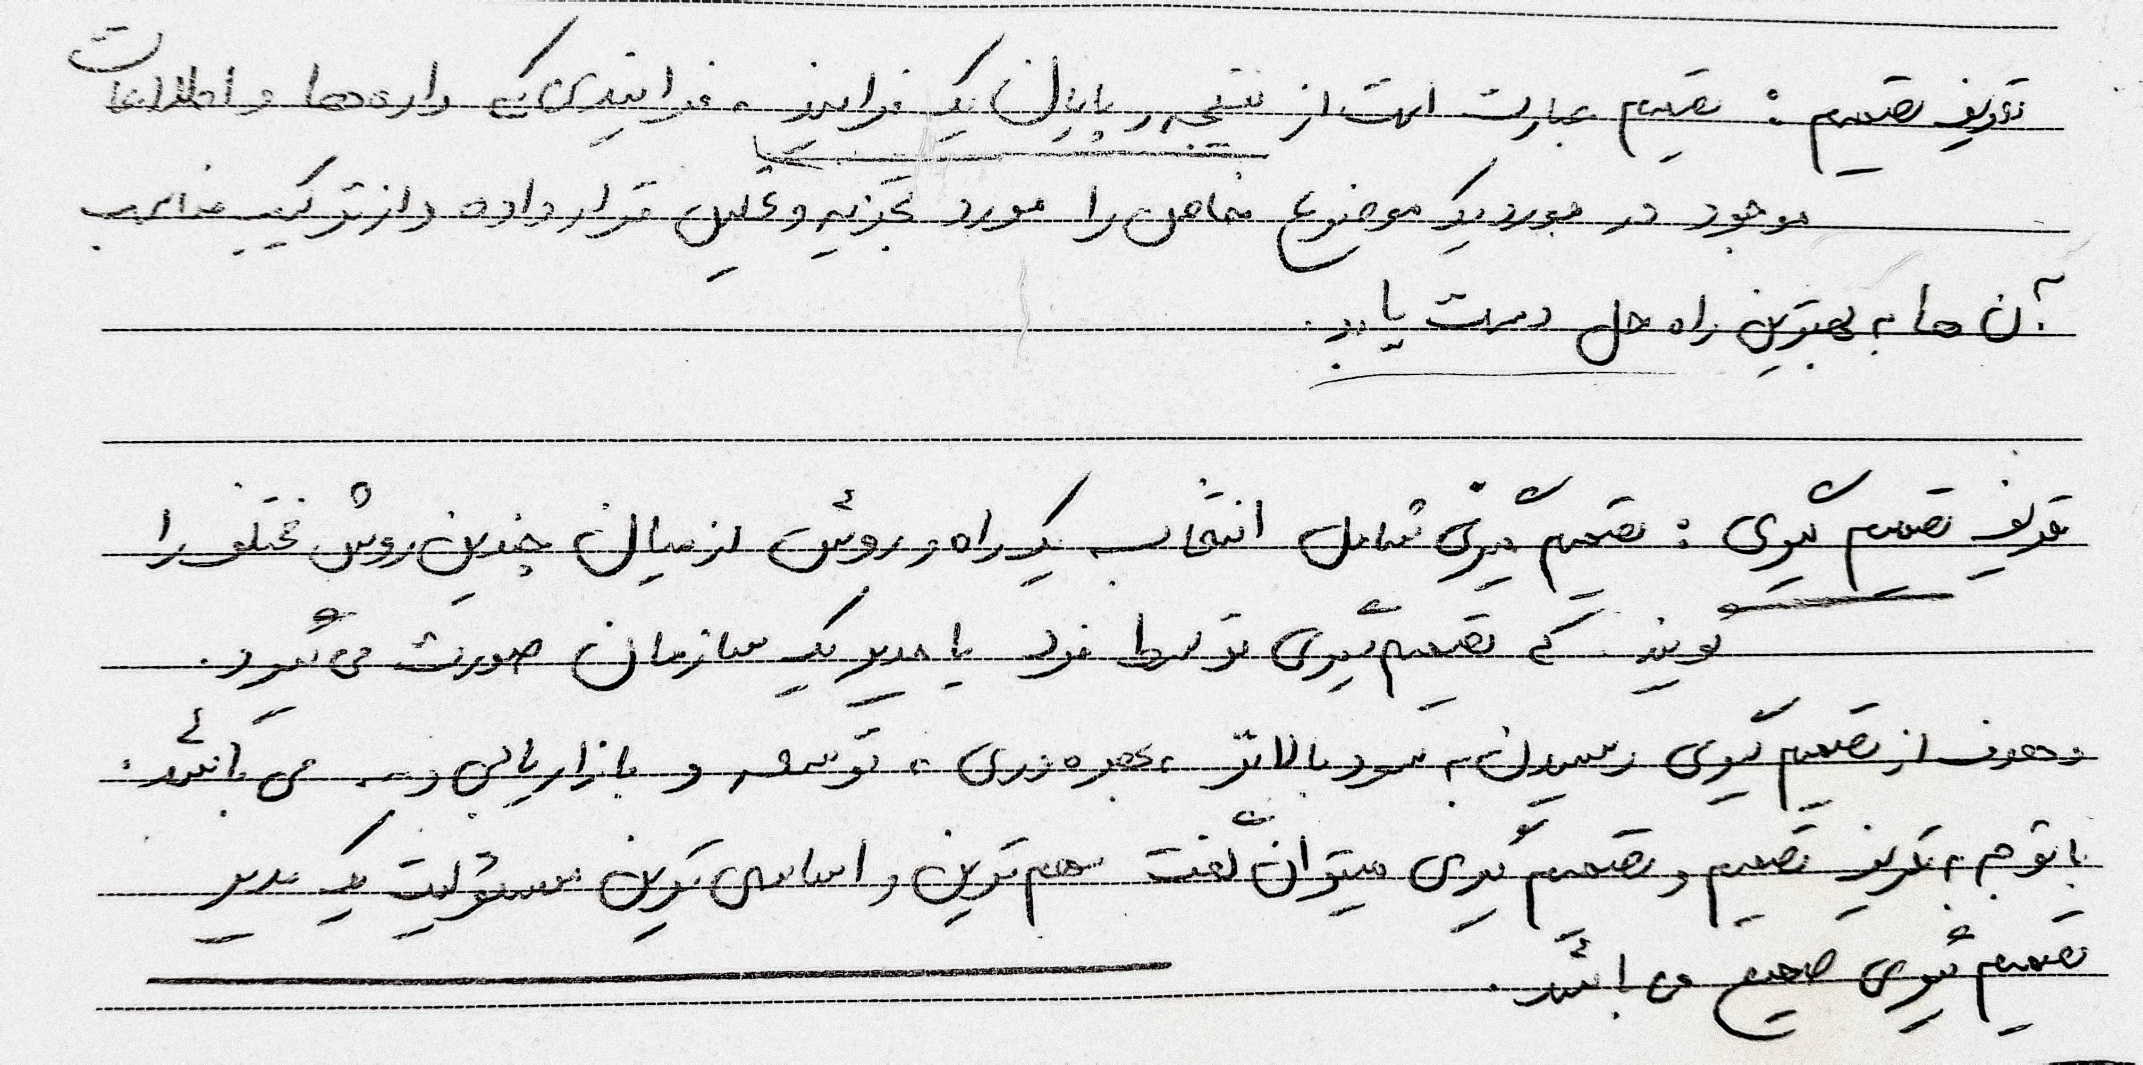 تعریف تصمیم : تصمیم عبارت است از نتیجه و پایان یک فرایند ، فرایندی که داده‌ها و اطلاعات
موجود در مورد یک موضوع خاص را مورد تجزیه و تحلیل قرار داده و از ترکیب مناسب
آن ها به بهترین راه حل دست یابد.
تعریف تصمیم گیری : تصمیم گیری شامل انتخاب یک راه و روش از میان چندین روش مختلف را
گویند. که تصمیم گیری توسط فرد یا مدیر یک سازمان صورت می گیرد.
و هدف از تصمیم گیری رسیدن به سود بالاتر ، بهره وری ، توسعه و بازاریابی و ... می باشد.
با توجه به تعریف تصمیم و تصمیم گیری میتوان گفت مهم ترین و اساسی ترین مسئولیت یک مدیر
تصمیم گیری صحیح می باشد.